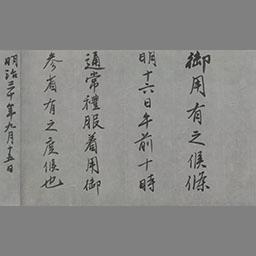 御用有之候條
明十六日午前十時
通常禮服着用御
参省有之度候也
明治三十年九月十五日